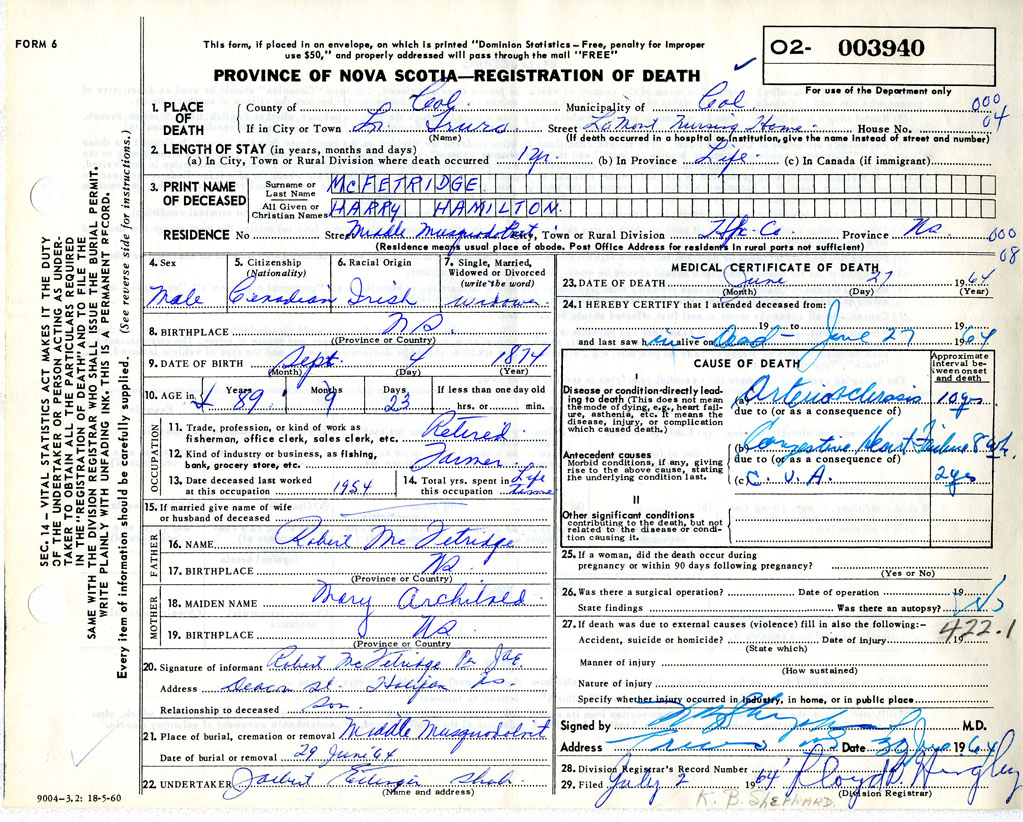 FORM 6
This form, if placed in an envelope, on which is printed "Dominion Statistics – Free, penalty for Improper
use $50," and properly addressed will pass through the mail "FREE"
02- 003940
For use of the Department only
PROVINCE OF NOVA SCOTIA—REGISTRATION OF DEATH
SEC. 14 – VITAL STATISTICS ACT MAKES IT THE DUTY
OF THE UNDERTAKER OR PERSON ACTING AS UNDER-
TAKER TO OBTAIN ALL THE PARTICULARS REQUIRED
IN THE "REGISTRATION OF DEATH" AND TO FILE THE
SAME WITH THE DIVISION REGISTRAR WHO SHALL ISSUE THE BURIAL PERMIT.
WRITE PLAINLY WITH UNFADING INK. THIS IS A PERMANENT RECORD.
Every item of information should be carefully supplied (See reverse side for instructions.)
1. PLACE OF DEATH
County of Col. Municipality of Col 000
If in City or Town Truro Street LaMont Nursing Home House No. 04
(Name) (If death occurred in a hospital or institution, give the name instead of street and number)
2. LENGTH OF STAY (in years, months and days)
(a) In City, Town or Rural Division where death occurred 1 yr. (b) In Province Life. (c) In Canada (if immigrant)
3. PRINT NAME OF DECEASED
Surname or Last Name McFETRIDGE
All Given or Christian Names HARRY HAMILTON.
RESIDENCE No Street Middle Musquodoboit City, Town or Rural Division Hfx. Co. Province NS 000
(Residence means usual place of abode. Post Office Address for residents in rural parts not sufficient) 08
4. Sex Male
5. Citizenship (Nationality) Canadian
6. Racial Origin Irish
7. Single, Married, Widowed or Divorced (write the word) Widower
8. BIRTHPLACE NS.
(Province or Country)
9. DATE OF BIRTH Sept. 4 1874
(Month) (Day) (Year)
10. AGE in Years 89 Months 9 Days 23 If less than one day old
hrs. or min.
OCCUPATION
11. Trade, profession, or kind of work as
fisherman, office clerk, sales clerk, etc. Retired
12. Kind of industry or business, as fishing,
bank, grocery store, etc. Farmer
13. Date deceased last worked
at this occupation 1954
14. Total yrs. spent in
this occupation Life time
15. If married give name of wife
or husband of deceased
FATHER
16. NAME Robert McFetridge
17. BIRTHPLACE NS
(Province or Country)
MOTHER
18. MAIDEN NAME Mary Archibald
19. BIRTHPLACE NS
(Province or Country)
20. Signature of informant Robert McFetridge Per
Address Deacon St. Halifax NS.
Relationship to deceased Son
21. Place of burial, cremation or removal Middle Musquodoboit
Date of burial or removal 29 June '64
22. UNDERTAKER Ettinger Shub.
(Name and address)
9004–3.2: 18-5-60
MEDICAL CERTIFICATE OF DEATH
23. DATE OF DEATH June 27 1964
(Month) (Day) (Year)
24. I HEREBY CERTIFY that I attended deceased from:
19 to June 27 1964
and last saw him alive on dead
CAUSE OF DEATH
Approximate interval between onset and death
I
Disease or condition directly lead-
ing to death (This does not mean
the mode of dying, e.g., heart fail-
ure, asthenia, etc. It means the
disease, injury, or complication
which caused death.)
(a) Arteriosclerosis 10 yrs
due to (or as a consequence of)
Antecedent causes
Morbid conditions, if any, giving
rise to the above cause, stating
the underlying condition last.
(b) Congestive Heart Failure 8 wk.
due to (or as a consequence of)
(c) C.V.A. 2 yrs
II
Other significant conditions
contributing to the death, but not
related to the disease or condi-
tion causing it.
25. If a woman, did the death occur during
pregnancy or within 90 days following pregnancy?
(Yes or No)
26. Was there a surgical operation? Date of operation 19
State findings Was there an autopsy? No
27. If death was due to external causes (violence) fill in also the following:– 422.1
Accident, suicide or homicide? Date of injury 19
(State which)
Manner of injury
(How sustained)
Nature of injury
Specify whether injury occurred in industry, in home, or in public place
Signed by M.D.
Address Truro NS Date 30 June 1964
28. Division Registrar's Record Number
29. Filed July 2 1964 Lloyd
(Division Registrar)
K. B. SHEPHARD